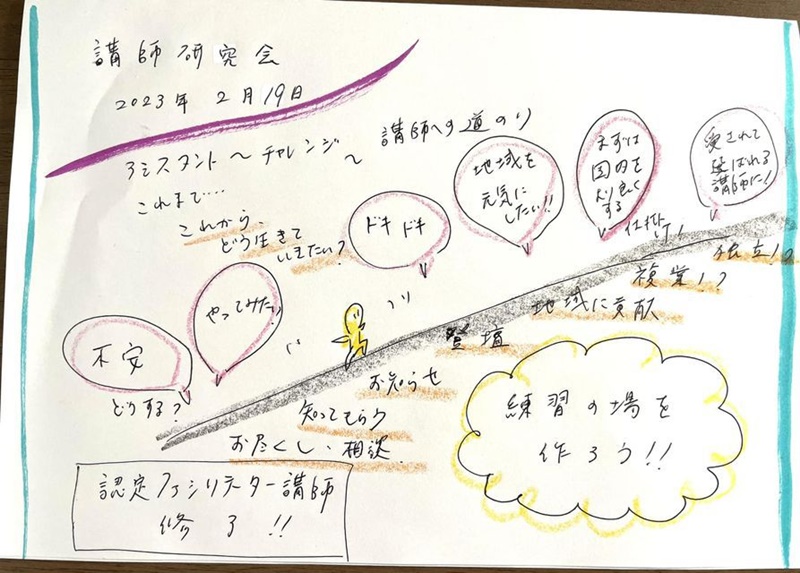 講師研究会
2023年 2月19日
アシスタント〜チャレンジ〜
講師への道のり
これまで‥‥
これから、
どう生きて
いきたい?
不安
どうする?
やってみたい
ドキドキ
地域を
元気に
したい!!
まずは
国の
する
仕掛け!
愛されて
選ばれる
講師に!
独立!?
複業!?
地域に貢献
登壇
お知らせ
知ってもらう
お尽くし・相談
練習の場を
作ろう!!
認定ファシリテーター講師
修了!!